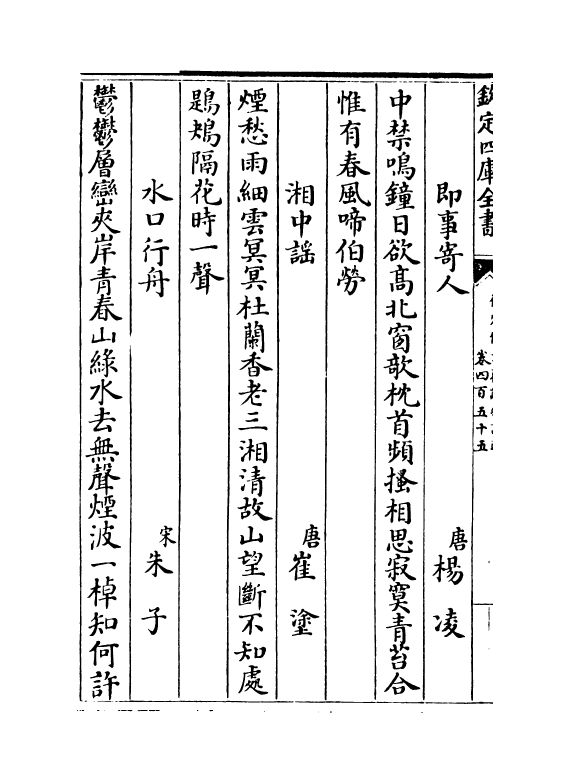 欽定四庫全書
卷四百五十五
即事寄人 唐 楊凌
中禁鳴鐘日欲髙北窗欹枕首頻搔相思寂寞青苔合
惟有春風啼伯勞
湘中謡 唐 崔塗
煙愁雨細雲冥冥杜蘭香老三湘清故山望斷不知處
鶗鴂隔花時一聲
水口行舟 宋 朱子
鬱鬱層巒夾岸青春山綠水去無聲煙波一棹知何許